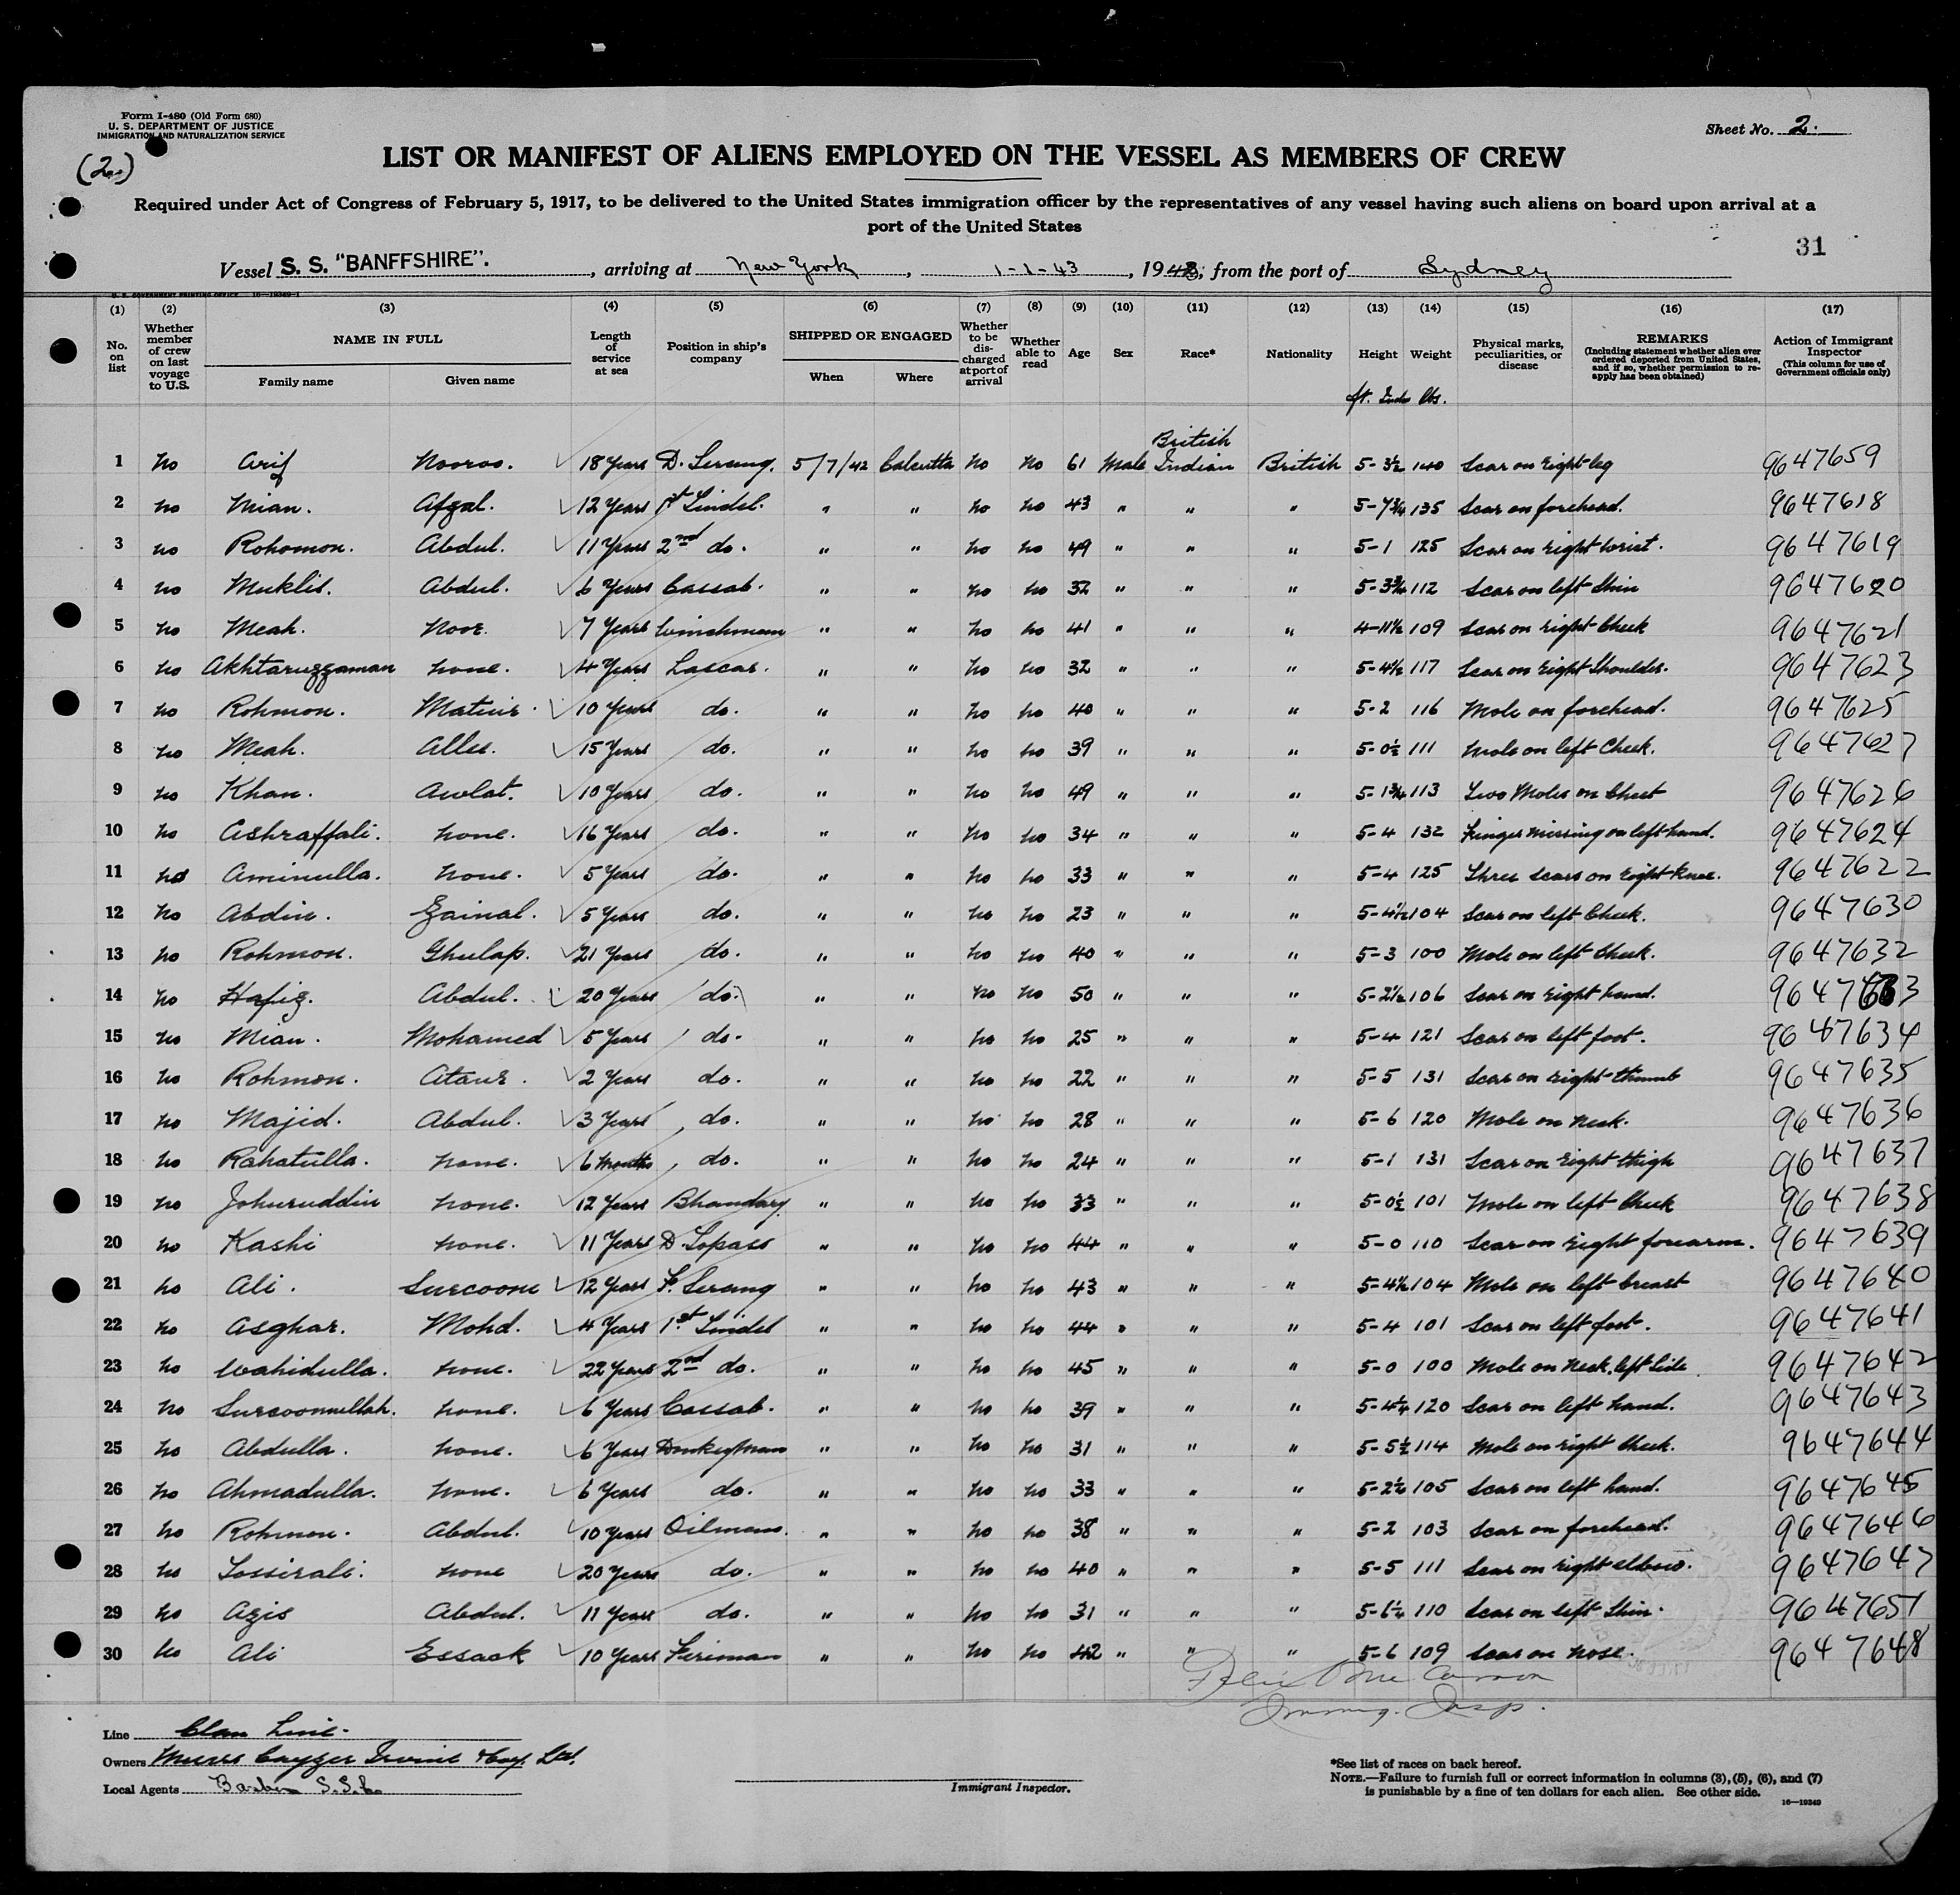 Form I-480 (Old Form 680)
U. S. DEPARTMENT OF JUSTICE
IMMIGRATION AND NATURALIZATION SERVICE
Sheet No. 2.
(2)
LIST OR MANIFEST OF ALIENS EMPLOYED ON THE VESSEL AS MEMBERS OF CREW
Required under Act of Congress of February 5, 1917, to be delivered to the United States immigration officer by the representatives of any vessel having such aliens on board upon arrival at a
port of the United States
31
Vessel S. S. "BANFFSHIRE". , arriving at New York , 1-1-43 , 1943; from the port of Sydney
(1) (2) (3) (4) (5) (6) (7) (8) (9) (10) (11) (12) (13) (14) (15) (16) (17)
No. on list Whether member of crew on last voyage to U.S. NAME IN FULL Family name Given name Length of service at sea Position in ship's company SHIPPED OR ENGAGED When Where Whether to be discharged at port of arrival Whether able to read Age Sex Race* Nationality Height Weight Physical marks, peculiarities, or disease REMARKS (Including statement whether alien ever ordered deported from United States, and if so, whether permission to reapply has been obtained) Action of Immigrant Inspector (This column for use of Government officials only)
ft. Inches lbs.
1 No Arif Nooroo. 18 Years D. Serang. 5/7/42 Calcutta No No 61 Male British Indian British 5-3½ 140 Scar on right leg 9647659
2 No Mian. Afzal. 12 Years 1st Tindel. " " No No 43 " " " 5-7¾ 135 Scar on forehead. 9647618
3 No Rohomon. Abdul. 11 Years 2nd do. " " No No 49 " " " 5-1 125 Scar on right wrist. 9647619
4 No Muklis. Abdul. 6 Years Cassab. " " No No 32 " " " 5-3¾ 112 Scar on left Shin 9647620
5 No Meah. Noor. 7 Years Winchman " " No No 41 " " " 4-11½ 109 Scar on right Cheek 9647621
6 No Akhtaruzzaman none. 4 Years Lascar. " " No No 32 " " " 5-4½ 117 Scar on right Shoulder. 9647623
7 No Rohmon. Matiur. 10 Years do. " " No No 40 " " " 5-2 116 Mole on forehead. 9647625
8 No Meah. Allee. 15 Years do. " " No No 39 " " " 5-0½ 111 Mole on left Cheek. 9647627
9 No Khan. Awlat. 10 Years do. " " No No 49 " " " 5-1¾ 113 Two Moles on Chest 9647626
10 No Ashraffali. none. 16 Years do. " " No No 34 " " " 5-4 132 Finger missing on left hand. 9647624
11 No Aminulla. none. 5 Years do. " " No No 33 " " " 5-4 125 Three scars on right knee. 9647622
12 No Abdin. Zainal. 5 Years do. " " No No 23 " " " 5-4½ 104 Scar on left Cheek. 9647630
13 No Rohmon. Ghulap. 21 Years do. " " No No 40 " " " 5-3 100 Mole on left Cheek. 9647632
14 No Hafiz. Abdul. 20 Years do. " " No No 50 " " " 5-2½ 106 Scar on right hand. 9647633
15 No Mian. Mohamed 5 Years do. " " No No 25 " " " 5-4 121 Scar on left foot. 9647634
16 No Rohmon. Ataur. 2 Years do. " " No No 22 " " " 5-5 131 Scar on right thumb 9647635
17 No Majid. Abdul. 3 Years do. " " No No 28 " " " 5-6 120 Mole on Neck. 9647636
18 No Rahatulla. none. 6 Months do. " " No No 24 " " " 5-1 131 Scar on right thigh 9647637
19 No Johuruddin none. 12 Years Bhandary " " No No 33 " " " 5-0½ 101 Mole on left Cheek 9647638
20 No Kashi none. 11 Years D Topass " " No No 44 " " " 5-0 110 Scar on right forearm. 9647639
21 No Ali. Surcoone 12 Years F. Serang " " No No 43 " " " 5-4½ 104 Mole on left breast 9647640
22 No Asghar. Mohd. 4 Years 1st Tindel " " No No 44 " " " 5-4 101 Scar on left foot. 9647641
23 No Wahidulla. none. 22 Years 2nd do. " " No No 45 " " " 5-0 100 Mole on Neck, left Side 9647642
24 No Surcoonullah. none. 6 Years Cassab. " " No No 39 " " " 5-4¼ 120 Scar on left hand. 9647643
25 No Abdulla. none. 6 Years Donkeyman " " No No 31 " " " 5-5½ 114 Mole on right Cheek. 9647644
26 No Ahmadulla. none. 6 Years do. " " No No 33 " " " 5-2½ 105 Scar on left hand. 9647645
27 No Rohmon. Abdul. 10 Years Oilman. " " No No 38 " " " 5-2 103 Scar on forehead. 9647646
28 No Tossirali. none 20 Years do. " " No No 40 " " " 5-5 111 Scar on right elbow. 9647647
29 No Azis Abdul. 11 Years do. " " No No 31 " " " 5-6¼ 110 Scar on left Shin. 9647651
30 No Ali Essack 10 Years Fireman " " No No 42 " " " 5-6 109 Scar on nose. 9647648
Immig. Insp.
Line Clan Line.
Owners Messrs Cayzer Irvine & Coy. Ltd.
Local Agents Barber S.S.
Immigrant Inspector.
*See list of races on back hereof.
NOTE.—Failure to furnish full or correct information in columns (3), (5), (6), and (7)
is punishable by a fine of ten dollars for each alien. See other side.
16—19349